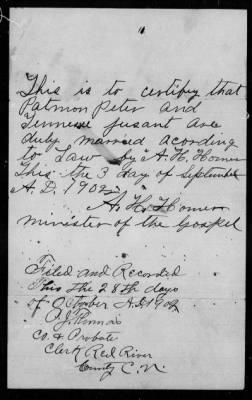 This is to certify that
Patmon Peter and
Tennesse Jusant are
duly married acording
to Law by A. H. Homer
This the 3 day of September
A. D. 1902
A. H. Homer
minister of the Gospel
Filed and Recorded
This the 28th days
of October A.D. 1902
Co. & Probate
Clerk Red River
County C. N.